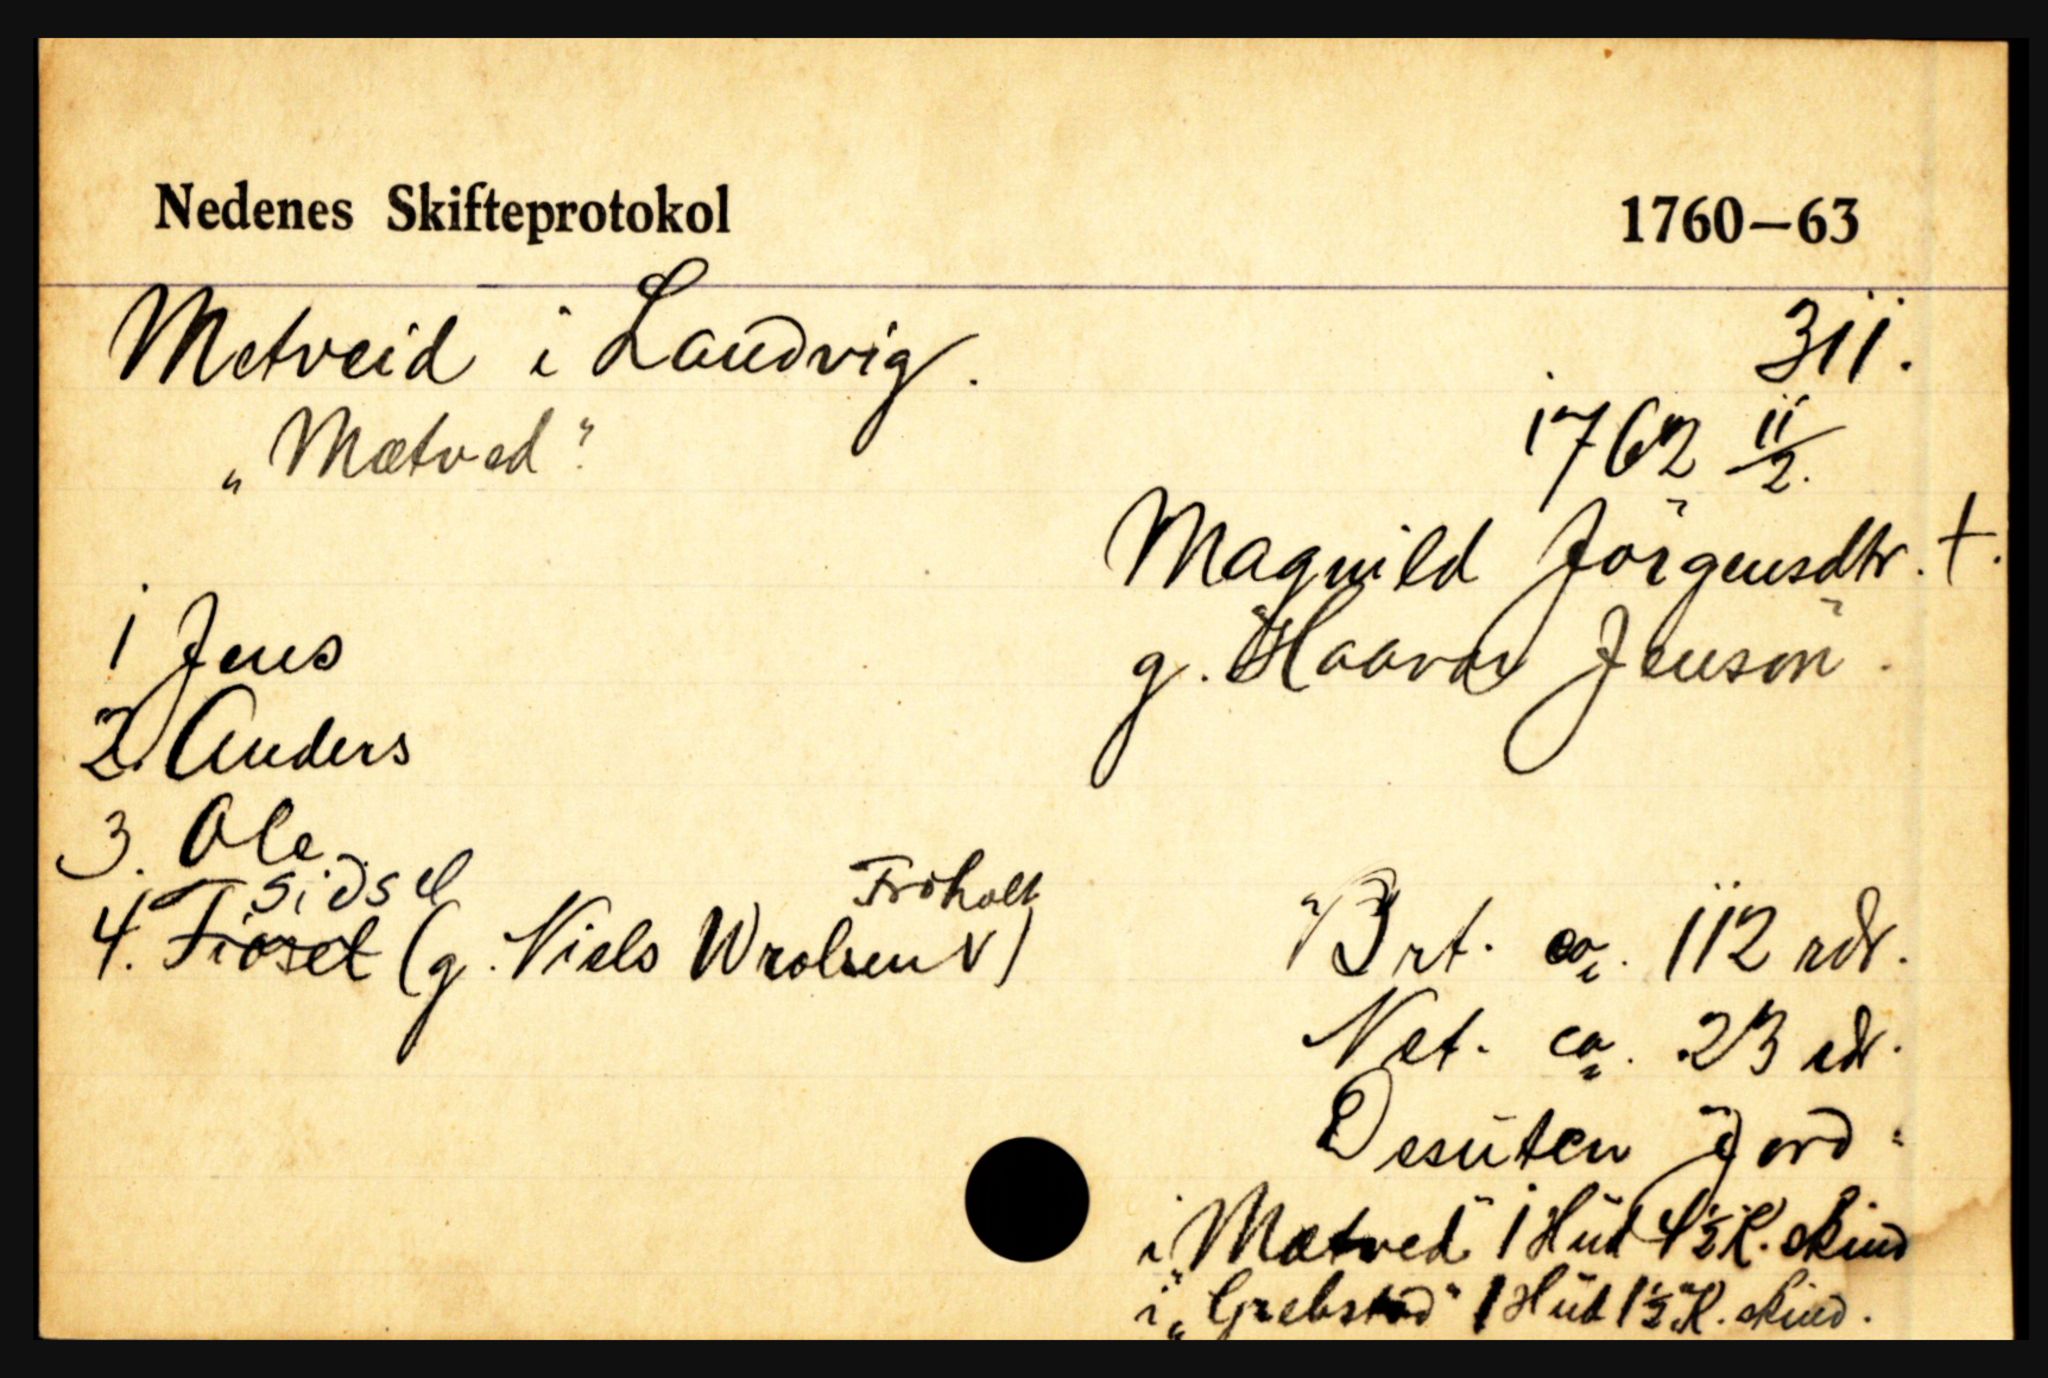 Nedenes Skifteprotokol 1760–63
Metveid i Landvig. 311.
„Mætved“ 1762 11/2.
Magnild Jörgensdtr. †.
g. Haavor Jensön.
1 Jens
2. Anders
3. Ole
Sidsel Fröholt
4. Tiosel (g. Niels Wrolsen)
Brt. ca. 112 rdr.
Net. ca. 23 rdr.
Desuten Jord:
i Mætved" 1 Hud 4 1/2 K. skind
i „Grebstad" 1 Hud 1 1/2 K. skind.